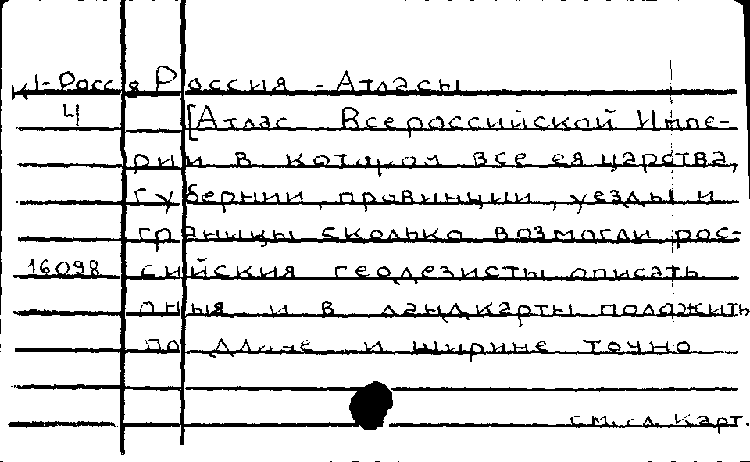 К1-Росся Россия - Атласы
4 [Атлас Всероссийской Импе-
рии в котором все ея царства,
губернии, провинции, уезды и
границы сколько возмогли рос-
16098 сийския геодезисты описать
оныя и в ландкарты положить
по длине и ширине точно
см. сл. карт.